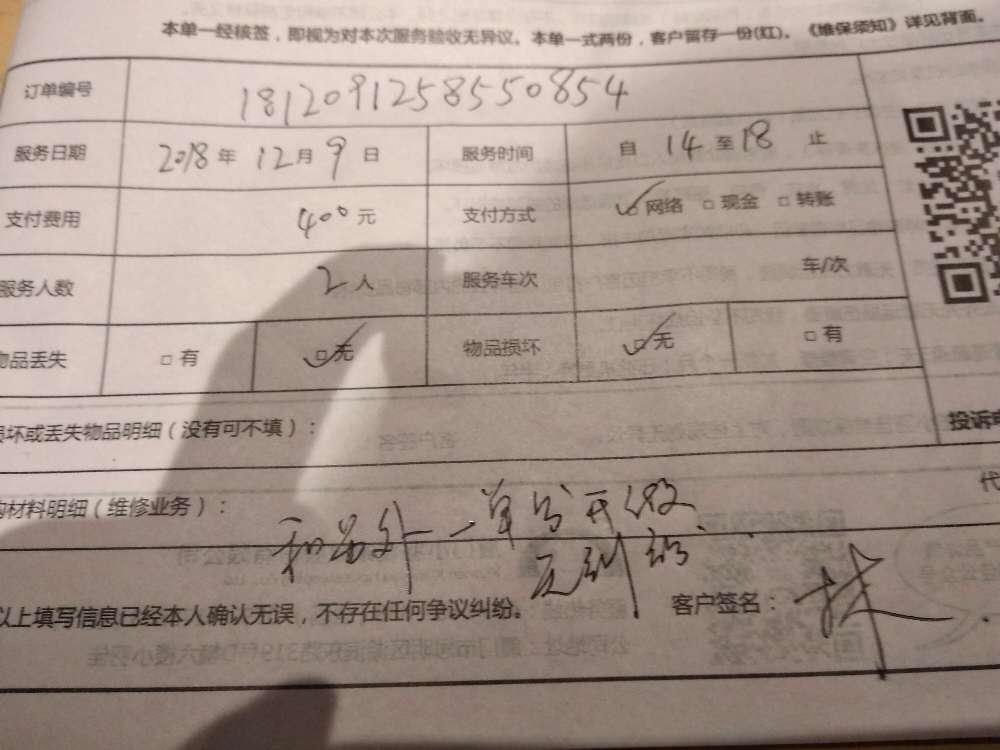 本单一经核签，即视为对本次服务验收无异议。本单一式两份，客户留存一份(红)。《维保须知》详见背面。
订单编号 1812091258550854
服务日期 2018年 12月 9日 服务时间 自 14 至 18 止
支付费用 400元 支付方式 ☑网络 □现金 □转账
服务人数 2人 服务车次 车/次
物品丢失 □有 ☑无 物品损坏 ☑无 □有
坏或丢失物品明细（没有可不填）： 投诉
材料明细（维修业务）： 代
和另外一单分开做
无纠纷
以上填写信息已经本人确认无误，不存在任何争议纠纷。 客户签名： 林